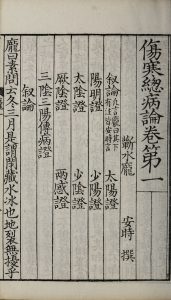 傷寒總病論卷第一
蘄水龐 安時 撰
敘論 太陽證
陽明證 少陽證
太陰證 少陰證
厥陰證 兩感證
三陰三陽傳病證
敘論
龐曰素問云冬三月是謂閉藏水冰地裂無擾乎